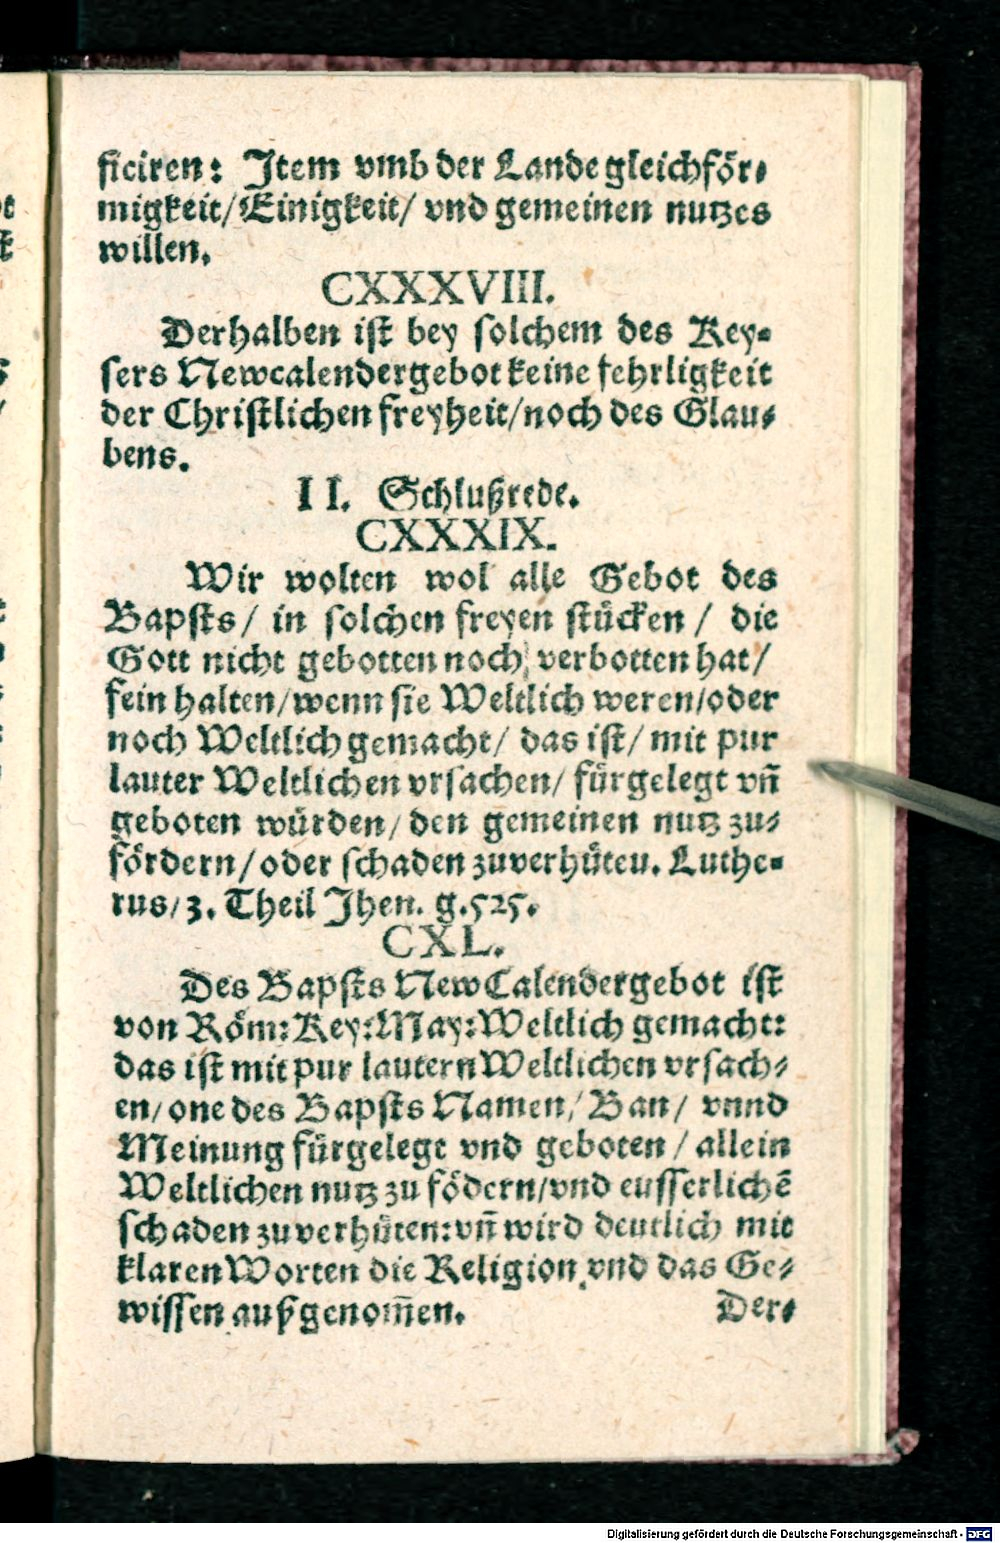 ficiren: Item vmb der Lande gleichför-
migkeit/ Einigkeit/ vnd gemeinen nutzes
willen.
CXXXVIII.
Derhalben ist bey solchem des Key-
sers Newcalendergebot keine fehrligkeit
der Christlichen freyheit/ noch des Glau-
bens.
II. Schlußrede.
CXXXIX.
Wir wolten wol alle Gebot des
Bapsts/ in solchen freyen stücken/ die
Gott nicht gebotten noch verbotten hat/
fein halten/ wenn sie Weltlich weren/ oder
noch Weltlich gemacht/ das ist/ mit pur
lauter Weltlichen vrsachen/ fürgelegt vñ
geboten würden/ den gemeinen nutz zu-
fördern/ oder schaden zuverhüteu. Luthe-
rus/ 3. Theil Jhen. g. 525.
CXL.
Des Bapsts NewCalendergebot ist
von Röm: Key: May: Weltlich gemacht:
das ist mit pur lautern Weltlichen vrsach-
en/ one des Bapsts Namen/ Ban/ vnnd
Meinung fürgelegt vnd geboten/ allein
Weltlichen nutz zu födern/ vnd eusserlichẽ
schaden zuverhüten: vñ wird deutlich mit
klaren Worten die Religion vnd das Ge-
wissen außgenom̃en.
Der-
Digitalisierung gefördert durch die Deutsche Forschungsgemeinschaft - DFG